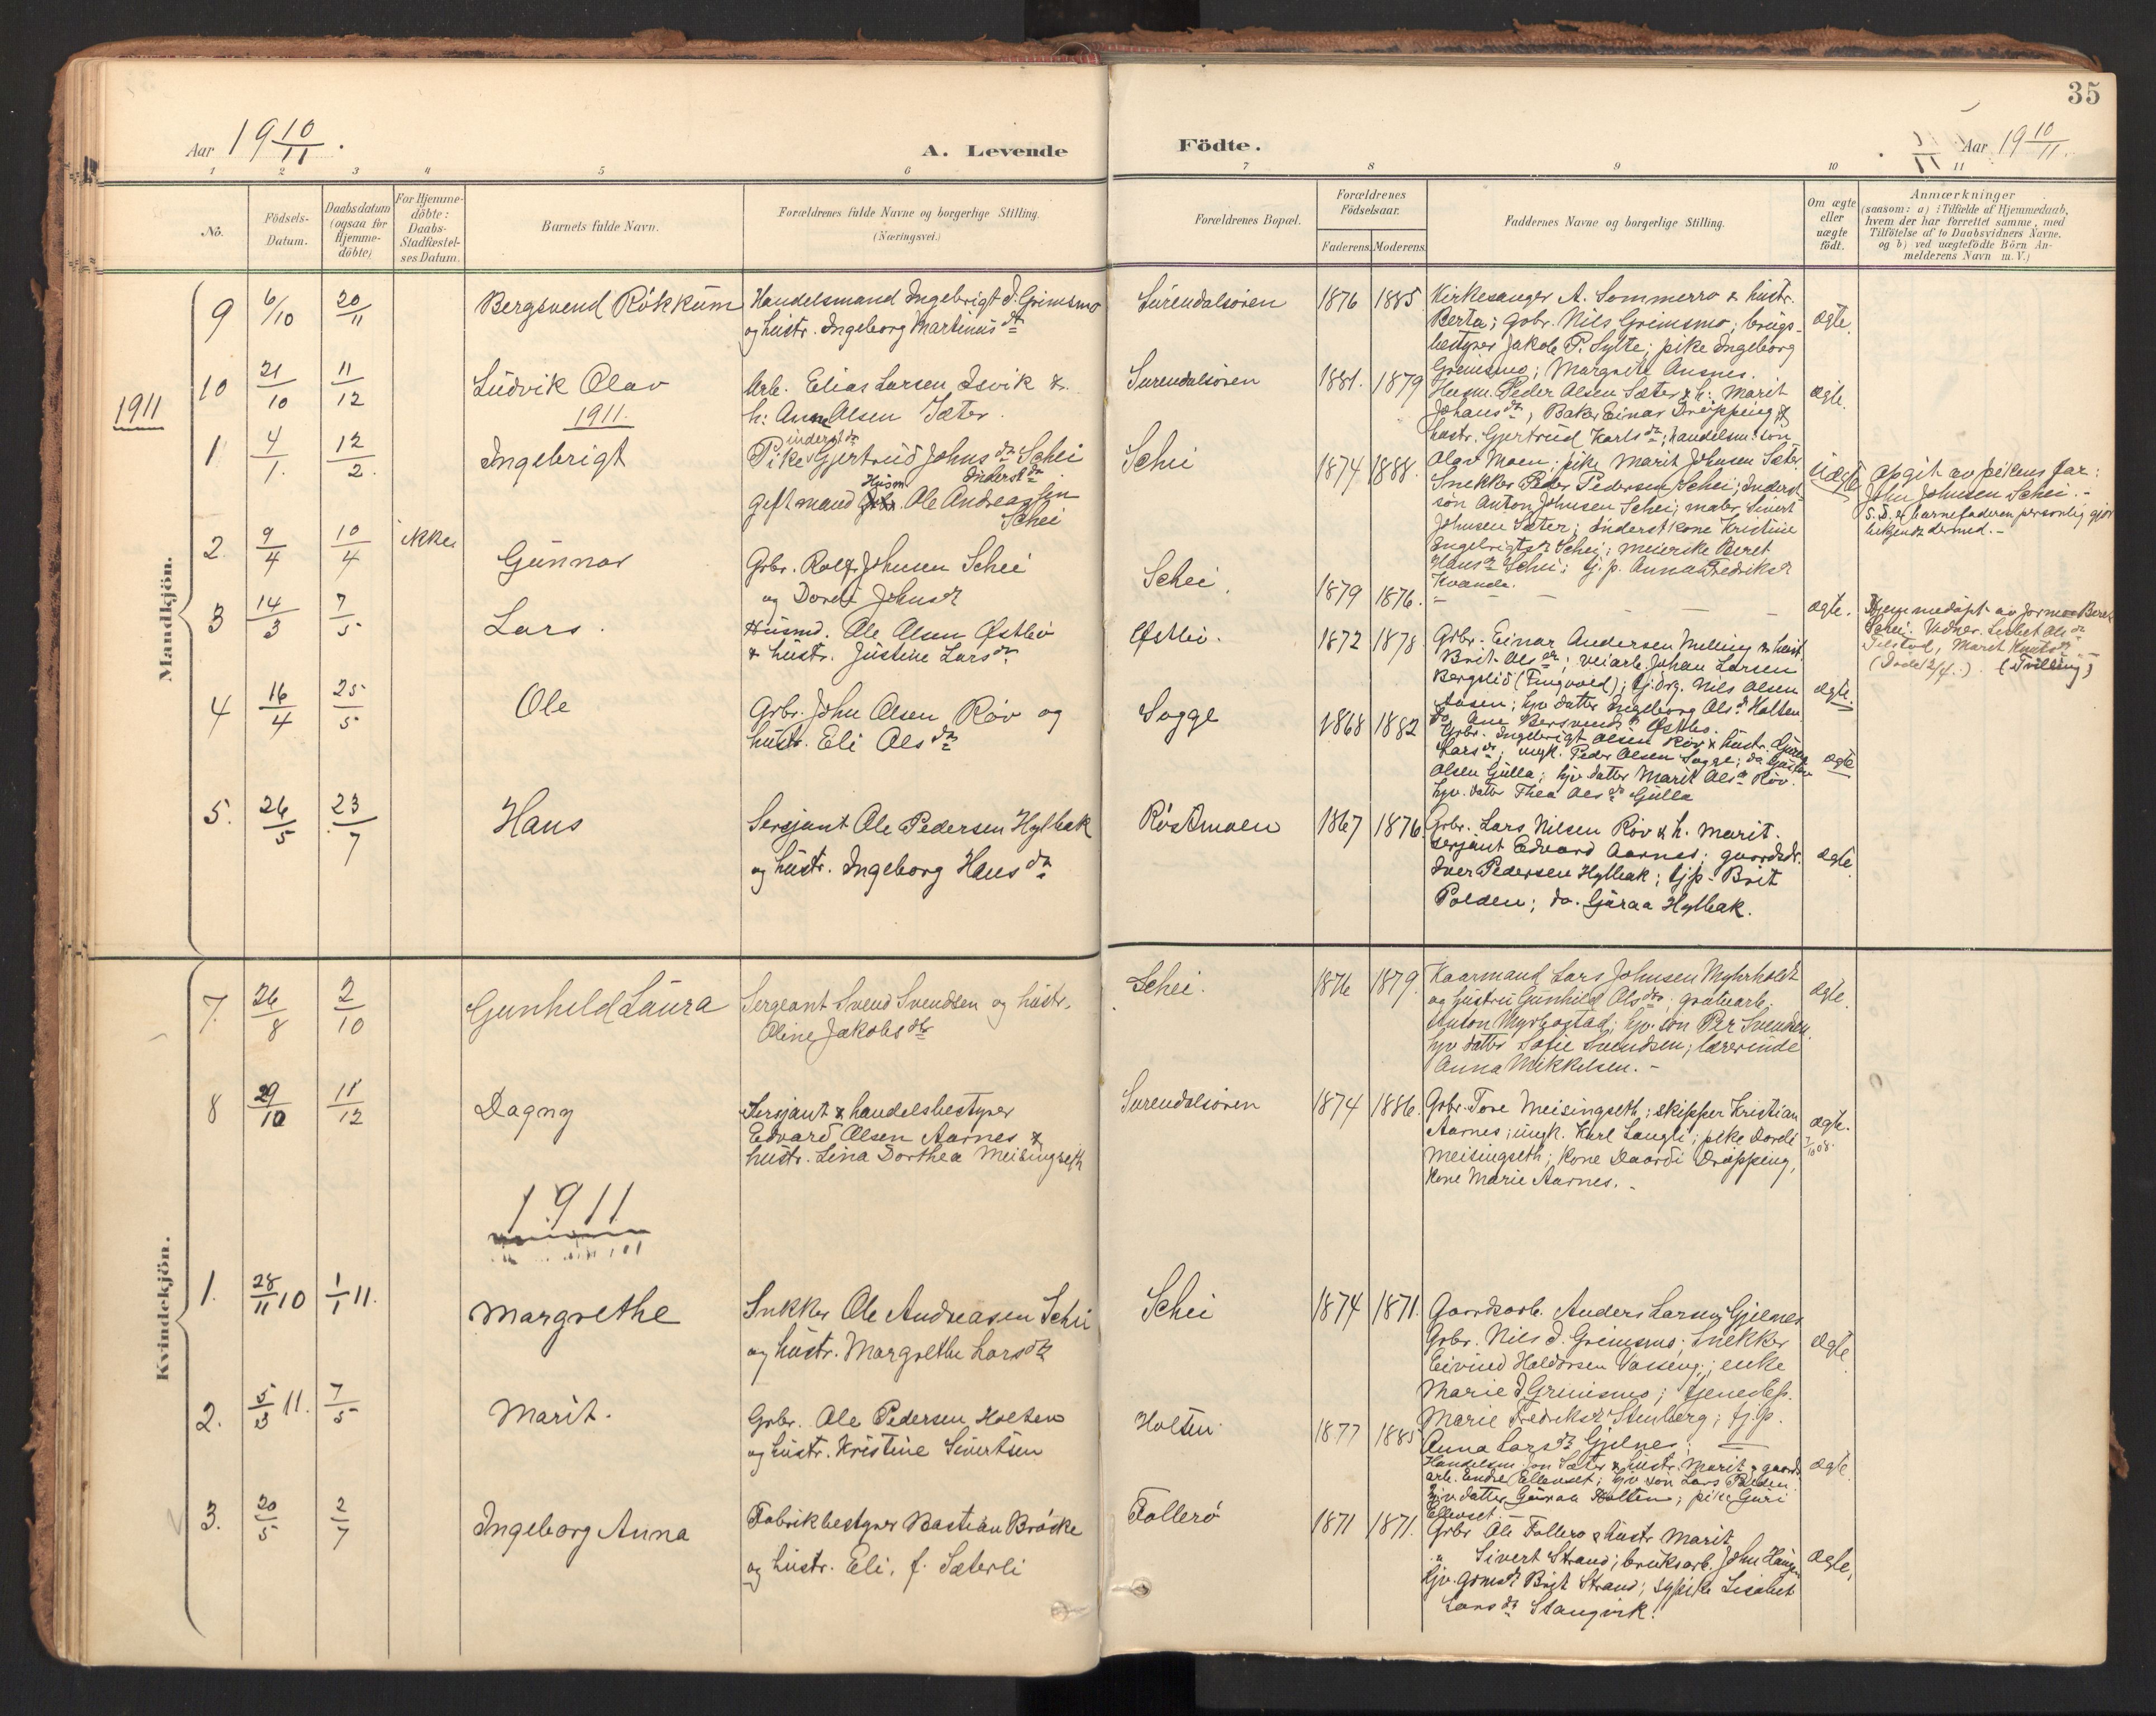 35
Aar 19 10/11.
A. Levende
Födte.
Aar 19 10/11.
1 2 3 4 5 6 7 8 9 10 11
No.
Födsels-
Datum.
Daabsdatum
(ogsaa for
Hjemme-
döbte)
For Hjemme-
döbte:
Daabs-
Stadfæstel-
ses Datum.
Barnets fulde Navn.
Forældrenes fulde Navne og borgerlige Stilling.
(Næringsvei.)
Forældrenes Bopæl.
Forældrenes
Födselsaar.
Faderens. Moderens.
Faddernes Navne og borgerlige Stilling.
Om ægte
eller
uægte
födt.
Anmærkninger
(saasom: a) i Tilfælde af Hjemmedaab,
hvem der har forrettet samme, med
Tilföielse af to Daabsvidners Navne.
og b) ved uægtefödte Börn An-
melderens Navn m. V.)
Mandkjön.
9 6/10 20/11 Bergsvend Rökkum
Handelsmand Ingebrigt J. Grimsmo
og hustr. Ingeborg Martinus dt
Surendalsören 1876 1885
Kirkesanger A. Sommerro & hustr.
Berta; gbr. Nils Grimsmo; brugs-
bestyrer Jakob P. Sylte; pike Ingeborg
Grimsmo; Margrit Ansnes.
ægte.
10 21/10 11/12 Ludvik Olav
Arb. Elias Larsen Isvik &
h: Anne Olsen Sæter.
Surendalsören 1881. 1879
Husm. Peder Olsen Sæter & h: Marit
Johans dtr; Baker Einar Dröpping &
hustr. Gjertrud Karls dtr; handelsm. sön
Olav Moen; pike Marit Johnsen Sæter
ægte.
1911
1911.
1 4/1. 12/2. Ingebrigt
inderst dtr
Pike Gjertrud Johns dtr Schei
Husm Inderst dtr
gift mand Ole Andreassen
Schei
Schei 1874 1888.
Snekker Peder Pedersen Schei; Inderst
sön Anton Johnsen Schei; maler Sivert
Johnsen Sæter; Inderst kone Kristine
Ingebrigts dtr Schei; meierske Beret
Hans dtr Schei; tj. p. Anna Fredriks dtr
Kvande.
uægte
Opgit av pikens far:
John Johnsen Schei.-
S. D. er barnefaderen personlig gjort
bekjendt dermed.-
2. 9/4 10/4 ikke. Gunnar
Gbr. Rolf Johnsen Schei
og Doret Johns dtr
Schei. 1879 1876.
ægte.
Hjemmedöpt av jorm. Beret
Schei. Vidner. Lisbet Ols dtr
Tilstad, Marit Knuts dtr.-
(Döde 12/4.). (Tvilling)
3 14/3 7/5 Lars.
Husmd. Ole Olsen Østbö
& hustr. Justine Lars dtr
Østbö. 1872 1878
Gbr. Einar Andersen Melling & hust.
Brit Ols dtr; veiarb. Johan Larsen
Bergslid (Tingvold); tj.drg. Nils Olsen
Aasen; hjv datter Ingeborg Ols dtr Holten
do Ane Bersvends dtr Østbö.
ægte.
4 16/4 25/5 Ole
Gbr. John Olsen Röv og
hustr. Eli Ols dtr
Sogge 1868 1882
Gbr. Ingebrigt Olsen Röv & hustr. Gjøra
Lars dtr; ungk. Peder Olsen Sogge; do Gustav
Olsen Gulla; hjv. datter Marit Ols dtr Röv.
hjv. datter Thea Ols dtr Gulla
ægte
5. 26/5 23/7 Hans
Sersjant Ole Pedersen Hylbak
og hustr. Ingeborg Hans dtr
Röstmoen 1867 1876
Gbr. Lars Nilsen Röv & h. Marit.
Sersjant Edvard Aarnes; gaardsdr.
Iver Pedersen Hylbak; tjp. Brit
Polden; do. Guraa Hylbak.
ægte.
Kvindekjön.
7. 26/8 2/10 Gunhild Laura
Sergeant Svend Svendsen og hustr.
Oline Jakobs dtr
Schei. 1876 1879.
Kaarmand Lars Johnsen Myhrholdt
og hustru Gunhild Ols dtr; grötuarb.
Anton Myrbostad; hjv. sön Per Svendsen
hjv datter Sofie Svendsen; lærerinde
Anna Mikkelsen.-
ægte.
8 29/10 11/12 Dagny
Sersjant & handelsbestyrer
Edvard Olsen Aarnes &
hustr. Lina Dorthea Meisingseth
Surendalsören 1874 1886.
Gbr. Tore Meisingseth; skipper Kristian
Aarnes; ungk. Karl Langli; pike Dordi
Meisingseth; kone Daardi Dröpping,
kone Marie Aarnes.-
ægte.
7/10 08.
1911
1. 28/11 10 1/1 11. Margrethe
Snekker Ole Andreasen Schei
og hustr. Margrethe Lars dtr
Schei 1874 1871.
Gaardsarb. Anders Larsen Gjelnes
Gbr. Nils J. Grimsmo; Snekker
Eivind Haldorsen Vaseng; enke
Marie J. Grimsmo; tjenestep.
Marie Fredriks dtr Stenberg; tj.p.
Anna Lars dtr Gjelnes.
ægte
2. 5/3 11. 7/5 Marit.
Gbr. Ole Pedersen Holten
og hustr. Kristine Sivertsen
Holten. 1877 1885
Handelsm. Jon Sæter & hustr. Marit & gaards
arb. Endre Ellevset; hjv. sön Lars Polden
hjv. datter Guraa Holten; pike Guri
Ellevset.-
ægte.
3. 20/5 2/7 Ingeborg Anna
Fabrikbestyrer Bastian Bröske
og hustr. Eli, f. Sæterli
Follerö 1871 1871.
Gbr Ole Follerö & hustr Marit
" Sivert Strand; bruksarb. John Haugen
hjv. grmdtr Brit Strand; sypike Lisabet
Lars dtr Stangvik.
ægte.